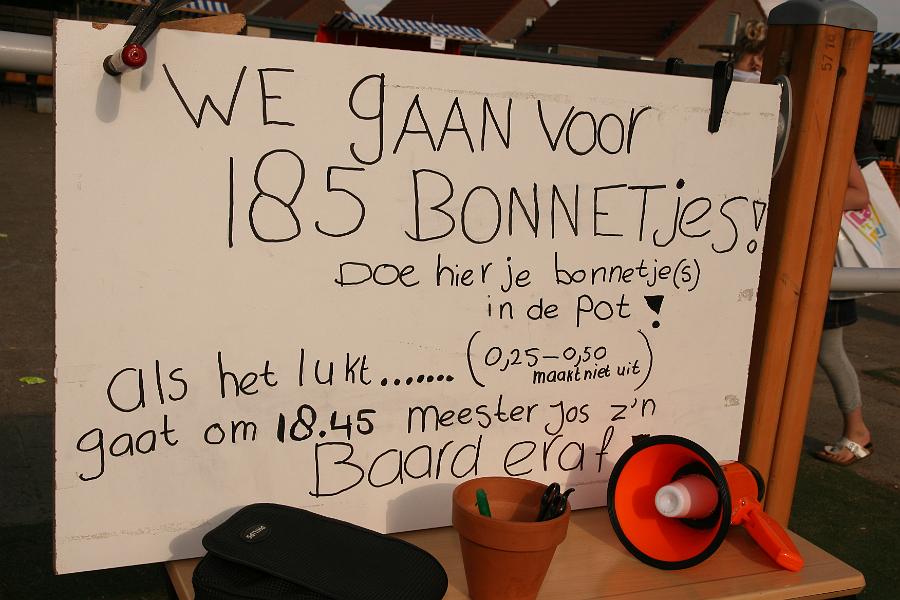 WE gAAN Voor
185 BONNETjes!
Doe hier je bonnetje(s)
in de Pot !
als het lukt....... (0,25-0,50
maakt niet uit)
gaat om 18.45 meester Jos z'n
Baard eraf
PHILIPS
57 14